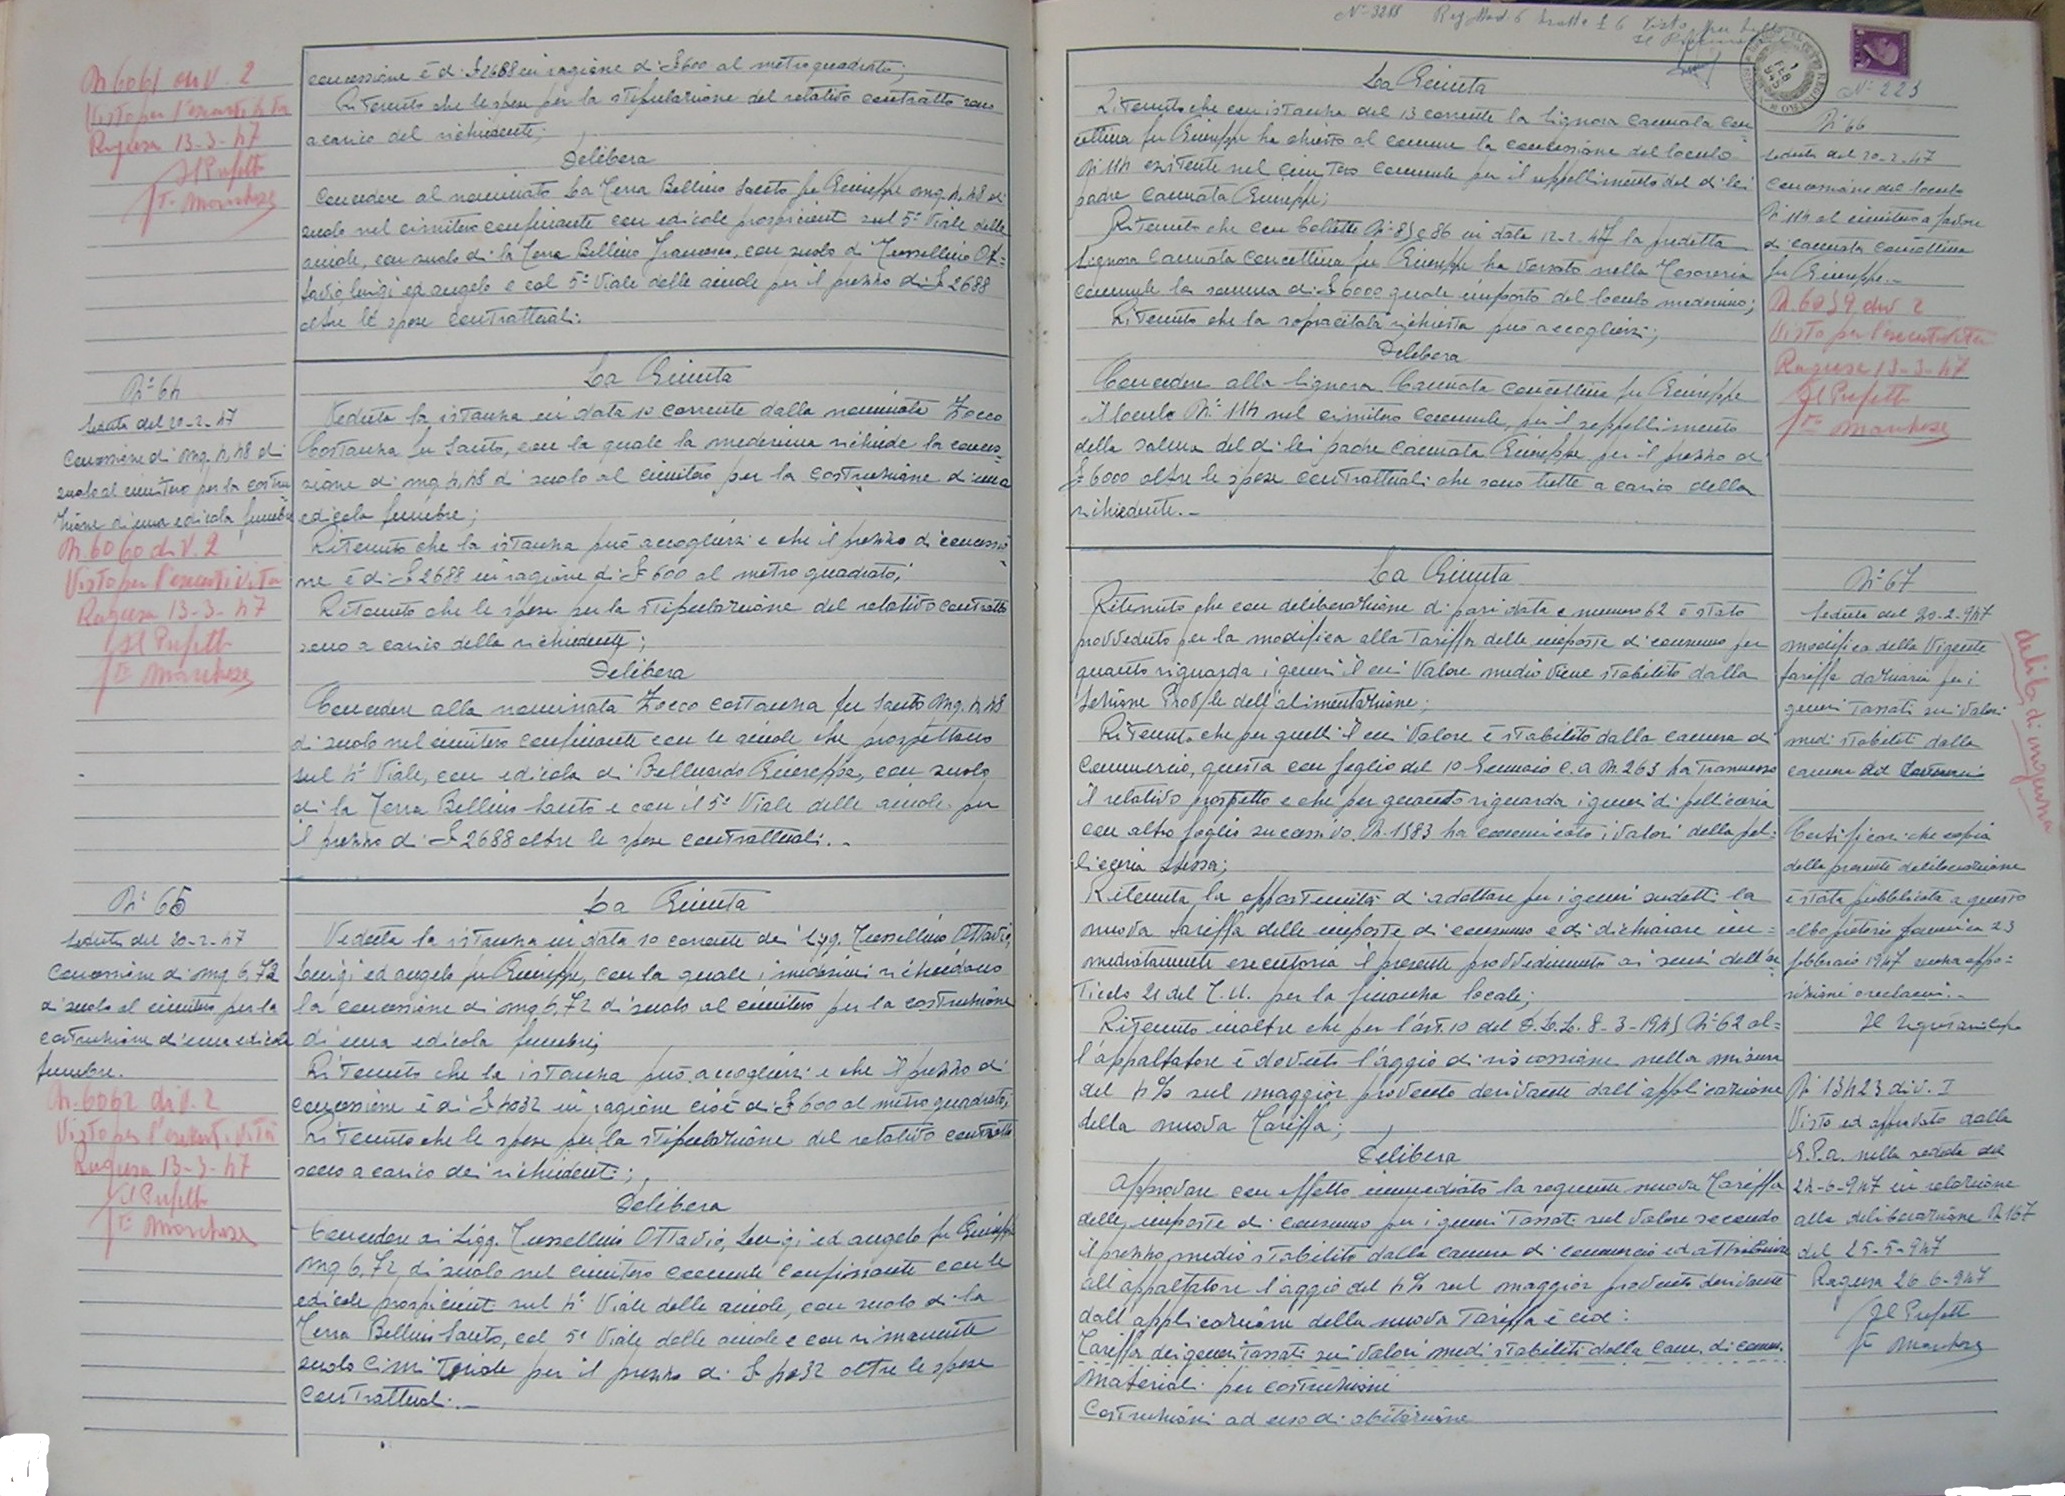 N. 6061 div. 2
Visto per l'esecutività
Ragusa 13-3-47
Il Prefetto
fto Marchese
concessione è di £ 2688 in ragione di £ 600 al metro quadrato;
Ritenuto che le spese per la stipulazione del relativo contratto sono
a carico del richiedente;
Delibera
Concedere al nominato La Terra Bellino Santo fu Giuseppe mq. 4,48 di
suolo nel cimitero confinante con edicole prospicienti sul 5° Viale delle
aiuole, con suolo di la Terra Bellino Francesco, con suolo di Tumellino Ot=
tavio, Luigi ed Angelo e col 5° Viale delle aiuole per il prezzo di £ 2688
oltre le spese contrattuali.
N° 64
Seduta del 20-2-47
Concessione di mq. 4,48 di
suolo al cimitero per la costru
zione di una edicola funebre
N. 6060 di V. 2
Visto per l'esecutività
Ragusa 13-3-47
Il Prefetto
fto Marchese
La Giunta
Veduta la istanza in data 10 corrente dalla nominata Zocco
Costanza fu Santo, con la quale la medesima richiede la conces=
sione di mq. 4,48 di suolo al cimitero per la costruzione d'una
edicola funebre;
Ritenuto che la istanza può accogliersi e che il prezzo di concessio
ne è di £ 2688 in ragione di £ 600 al metro quadrato;
Ritenuto che le spese per la stipulazione del relativo contratto
sono a carico della richiedente;
Delibera
Concedere alla nominata Zocco Costanza fu Santo mq. 4,48
di suolo nel cimitero confinante con le aiuole che prospettano
sul 4° Viale, con edicola di Belluardo Giuseppe, con suolo
di la Terra Bellino Santo e con il 5° Viale delle aiuole per
il prezzo di £ 2688 oltre le spese contrattuali.-
N° 65
Seduta del 20-2-47
Concessione di mq. 6,72
di suolo al cimitero per la
costruzione d'una edicola
funebre.
N. 6062 di V. 2
Visto per l'esecutività
Ragusa 13-3-47
Il Prefetto
fto Marchese
La Giunta
Veduta la istanza in data 10 corrente dei Sigg. Tumellino Ottavio,
Luigi ed Angelo fu Giuseppe, con la quale i medesimi richiedono
la concessione di mq 6,72 di suolo al cimitero per la costruzione
di una edicola funebre;
Ritenuto che la istanza può accogliersi e che il prezzo di
concessione è di £ 4032 in ragione cioè di £ 600 al metro quadrato;
Ritenuto che le spese per la stipulazione del relativo contratto
sono a carico dei richiedenti;
Delibera
Concedere ai Sigg. Tumellino Ottavio, Luigi ed Angelo fu Giuseppe
mq 6,72 di suolo nel cimitero comunale confinante con le
edicole prospicienti sul 4° Viale delle aiuole, con suolo di la
Terra Bellino Santo, col 5° Viale delle aiuole e con rimanente
suolo cimiteriale per il prezzo di £ 4032 oltre le spese
contrattuali.-
N° 3288 Reg. Mod. 6 Visto per bollo
N° 223
La Giunta
Ritenuto che con istanza del 13 corrente la Signora Cannata Con
cettina fu Giuseppe ha chiesto al comune la concessione del loculo
N° 114 esistente nel cimitero comunale per il seppellimento del di lei
padre Cannata Giuseppe;
Ritenuto che con bollette N° 85 e 86 in data 12-2-47 la predetta
Signora Cannata Concettina fu Giuseppe ha versato nella Tesoreria
comunale la somma di £ 6000 quale importo del loculo medesimo;
Ritenuto che la sopracitata richiesta può accogliersi;
Delibera
Concedere alla Signora Cannata Concettina fu Giuseppe
il loculo N° 114 nel cimitero comunale, per il seppellimento
della salma del di lei padre Cannata Giuseppe per il prezzo di
£ 6000 oltre le spese contrattuali che sono tutte a carico della
richiedente.-
N° 66
Seduta del 20-2-47
Concessione del loculo
N° 114 al cimitero a favore
di Cannata Concettina
fu Giuseppe.-
N. 6059 div. 2
Visto per l'esecutività
Ragusa 13-3-47
Il Prefetto
fto Marchese
La Giunta
Ritenuto che con deliberazione di pari data e numero 62 è stato
provveduto per la modifica alla Tariffa delle imposte di consumo per
quanto riguarda i generi il cui valore medio viene stabilito dalla
Sezione Prov/le dell'alimentazione;
Ritenuto che per quelli il cui valore è stabilito dalla camera di
Commercio, questa con foglio del 10 Gennaio c.a. N. 263 ha trasmesso
il relativo prospetto e che per quanto riguarda i generi di pellicceria
con altro foglio successivo N. 1383 ha comunicato i valori della pel=
licceria stessa;
Ritenuta la opportunità di adottare per i generi sudetti la
nuova tariffa delle imposte di consumo e di dichiarare im=
mediatamente esecutorio il presente provvedimento ai sensi dell'ar
ticolo 21 del T.U. per la finanza locale;
Ritenuto inoltre che per l'art. 10 del D.L.L. 8-3-1945 N° 62 al=
l'appaltatore è dovuto l'aggio di riscossione nella misura
del 4% sul maggior provento derivante dall'applicazione
della nuova Tariffa;
Delibera
Approvare con effetto immediato la seguente nuova Tariffa
delle imposte di consumo per i generi Tassati sul valore secondo
il prezzo medio stabilito dalla camera di commercio ed attribuire
all'appaltatore l'aggio del 4% sul maggior provento derivante
dall'applicazione della nuova Tariffa e cioè:
Tariffa dei generi Tassati sui valori medi stabiliti dalla Cam. di comm.
Materiali per costruzioni
Costruzioni ad uso di abitazione
N° 67
Seduta del 20-2-947
modifica della vigente
tariffa daziaria per i
generi Tassati sui valori
medi stabiliti dalla
camera del Commercio
Certificasi che copia
della presente deliberazione
è stata pubblicata a questo
albo pretorio domenica 23
febbraio 1947 senza oppo=
sizioni o reclami.-
Il Segretario Capo
N° 13423 div. I
Visto ed approvato dalla
G.P.A. nella seduta del
24-6-947 in relazione
alla deliberazione N 167
del 25-5-947
Ragusa 26-6-947
Il Prefetto
fto Marchese
delib. di urgenza